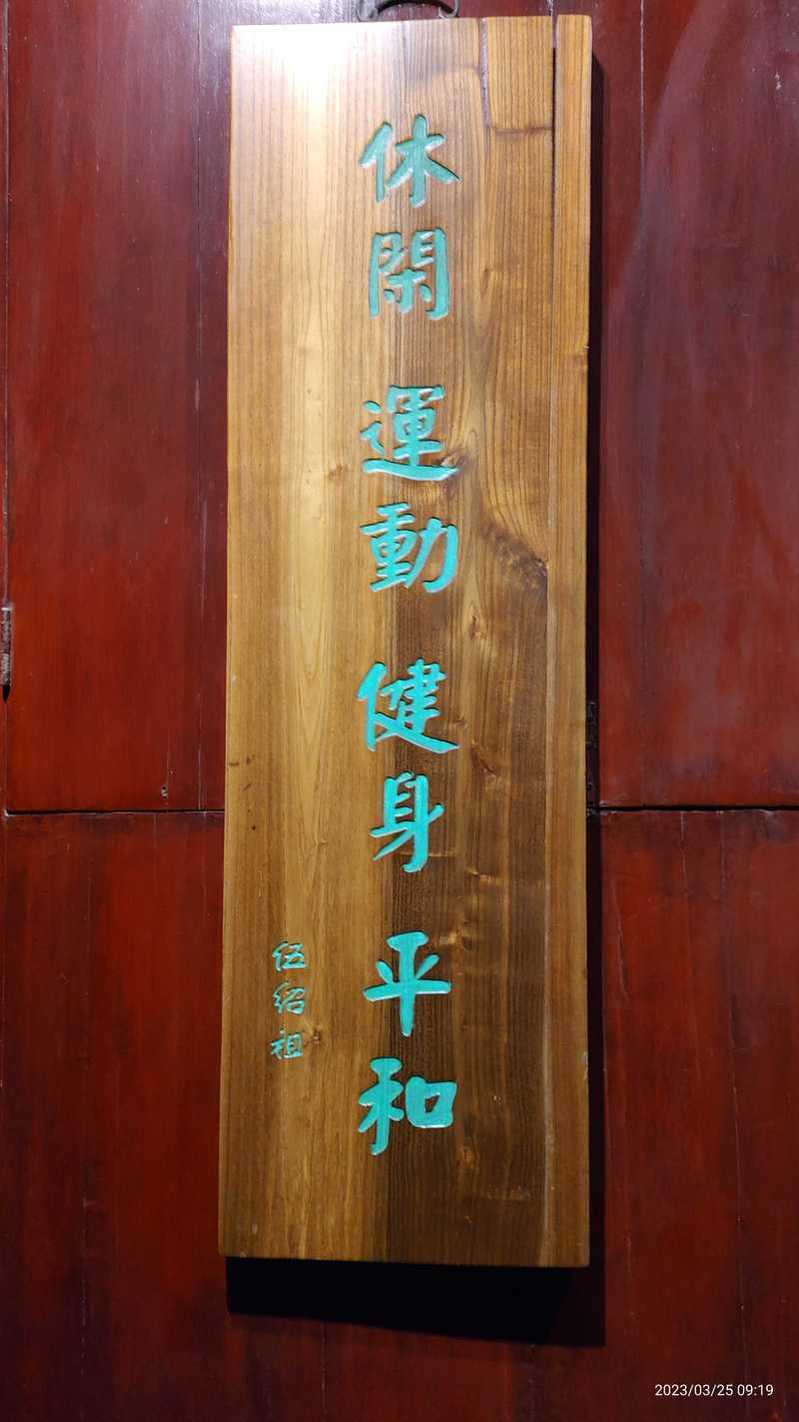 休閑 運動 健身 平和
伍紹祖
2023/03/25 09:19